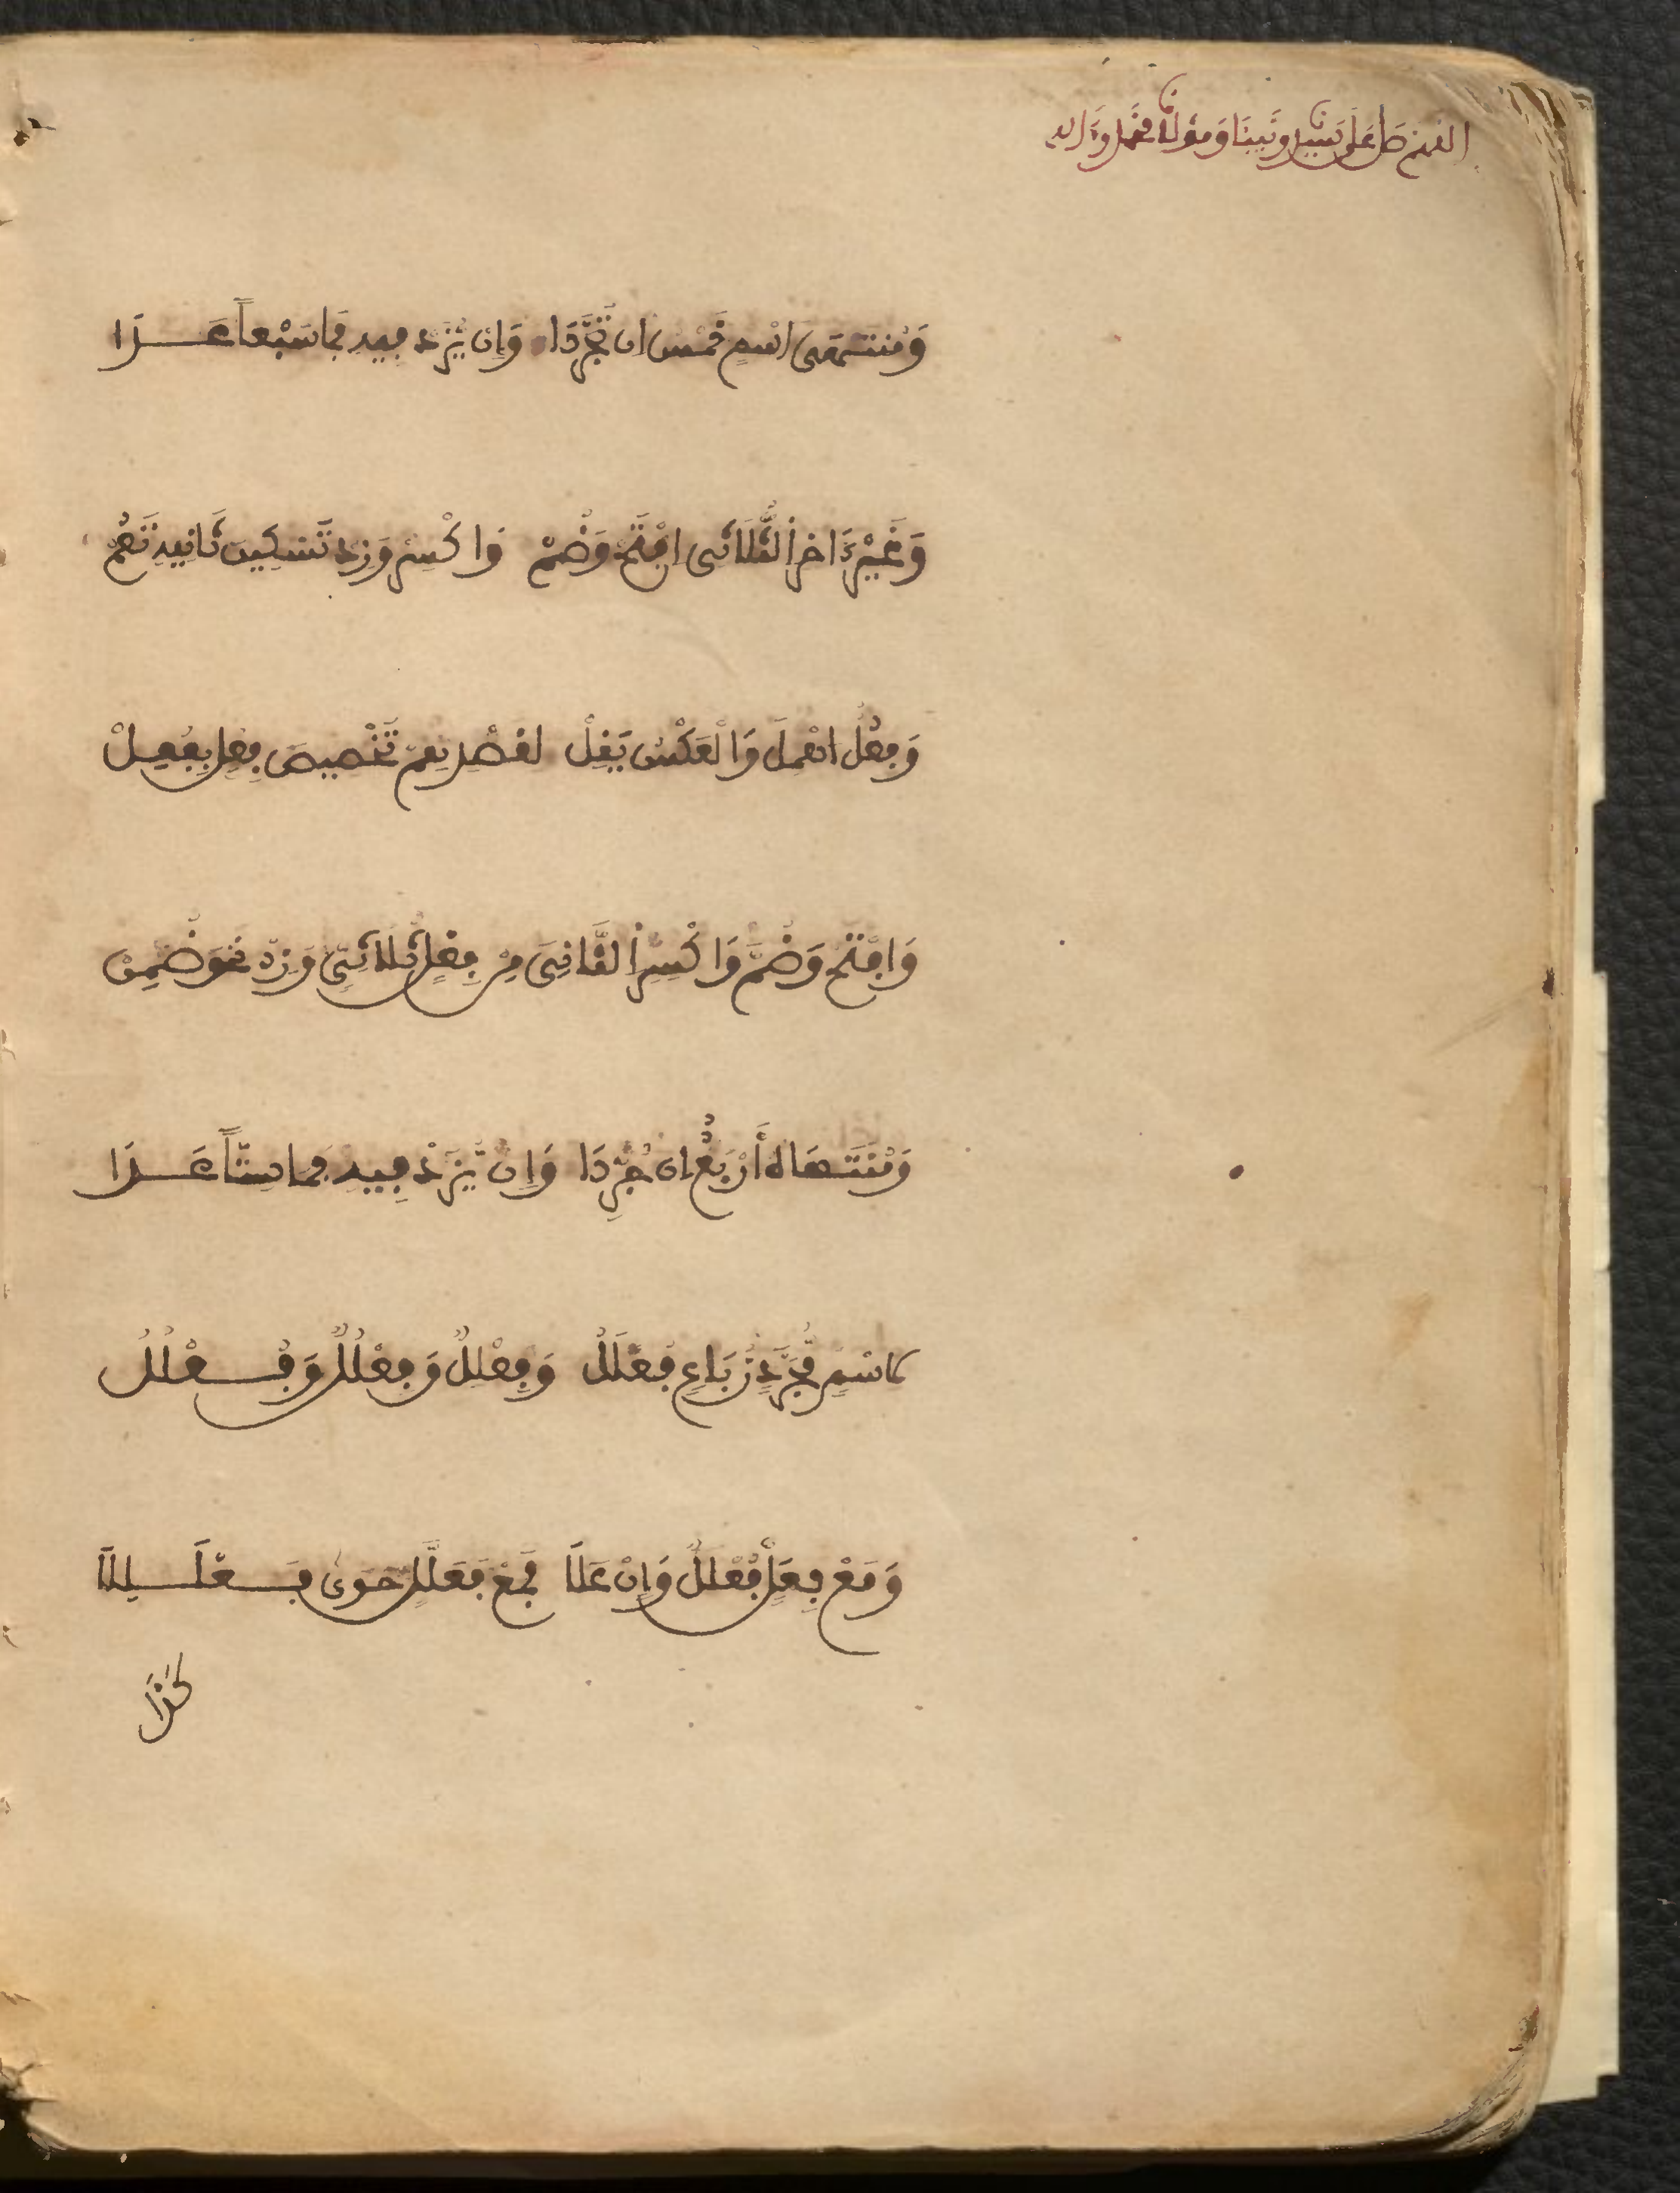 اللهم صل على سيدنا ونبينا ومولانا محمد وآله
وَمُنتَهَى اسْمٍ خَمْسٌ ان تَجَرَّدَا وَإِن يُّزَدْ فِيهِ فَمَا سَبْعاً عَدَا
وَغَيْرَ ءَاخِرِ الثُّلَاثِى افْتَحْ وَضُمْ وَاكْسِرْ وَزِدْ تَسْكِينَ ثَانِيهِ تَعُمْ
وَفِعُلٌ اهْمِلَ وَالْعَكْسُ يَقِلْ لِقَصْدِهِم تَخْصِيصَ فِعْلٍ بِفُعِلْ
وَافْتَحْ وَضُمَّ وَاكْسِرِ الثَّانِىَ مِن فِعْلٍ ثُلَاثِىٍّ وَزِدْ نَحْوَ ضُمِنْ
وَمُنتَهَاهُ أَرْبَعٌ ان جُرِّدَا وَإِن يُّزَدْ فِيهِ فَمَا سِتّاً عَدَا
لِاسْمٍ مُّجَرَّدٍ رُّبَاعٍ فَعْلَلُ وَفِعْلِلٌ وَفِعْلَلٌ وَفُعْلُلُ
وَمَعْ فِعَلٍّ فُعْلَلٌ وَإِنْ عَلَا فَمَعْ فَعَلَّلٍ حَوَى فَعْلَلِلَا
كَذَا